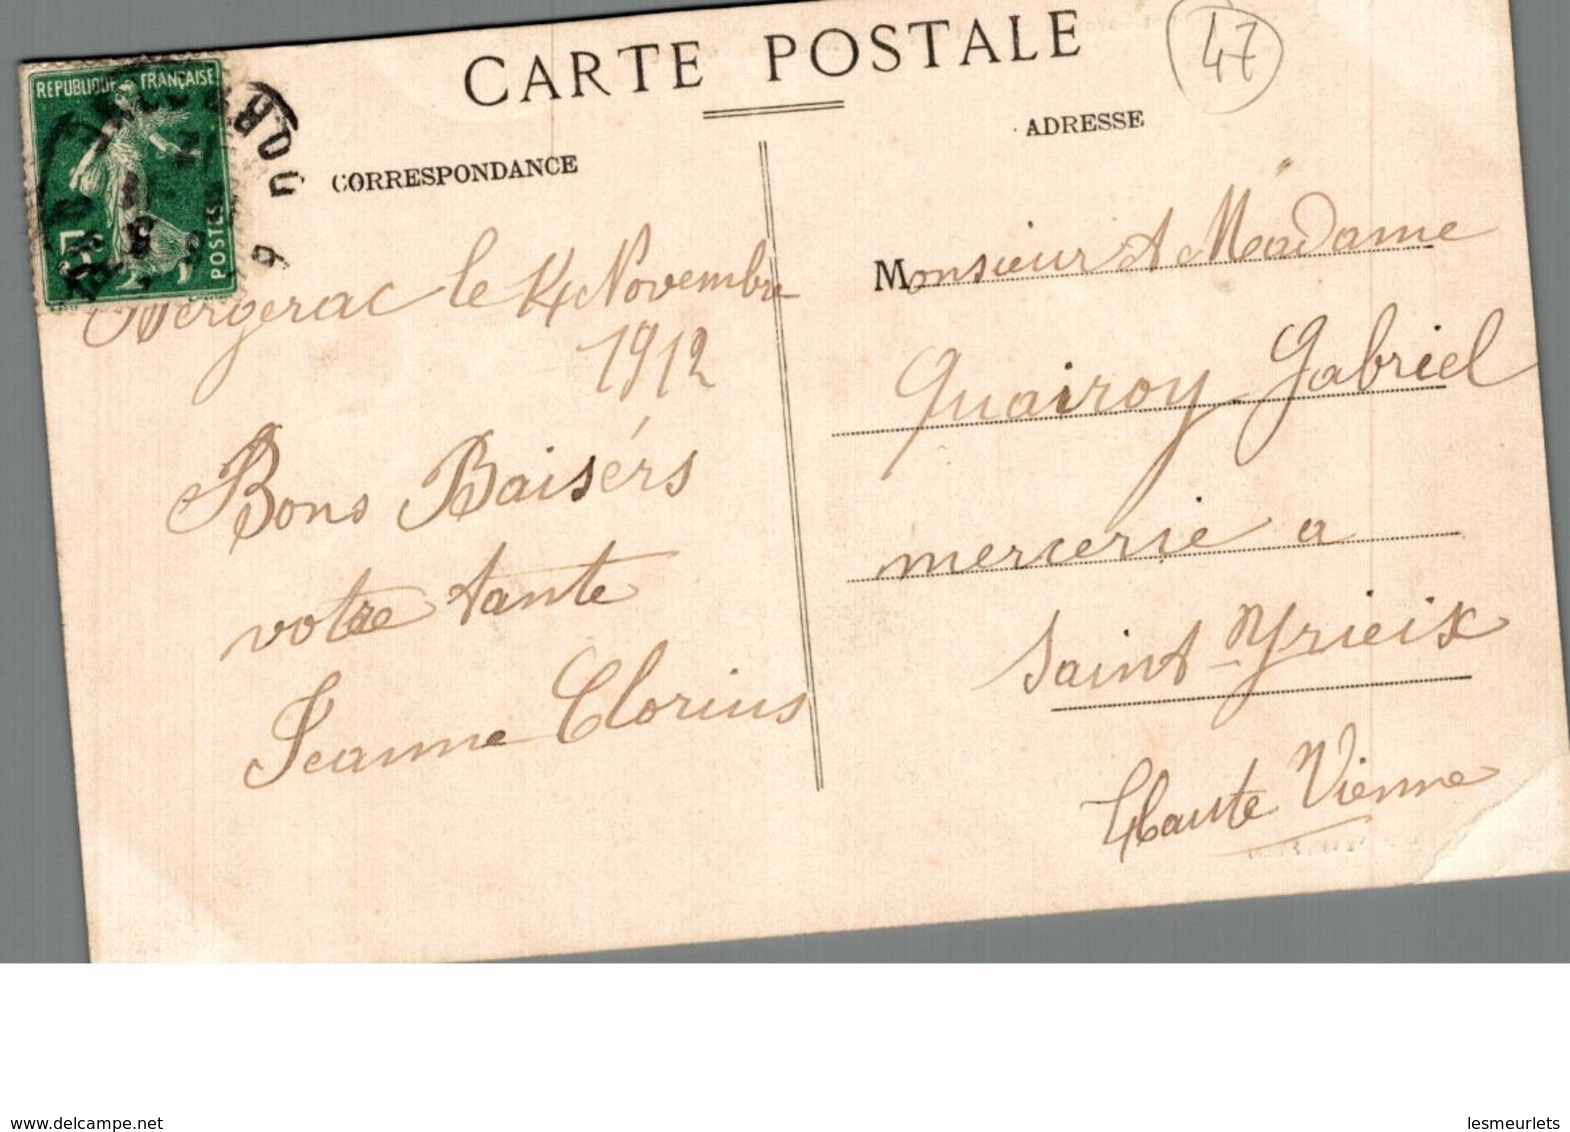 CARTE POSTALE
47
REPUBLIQUE FRANÇAISE
POSTES
CORRESPONDANCE
ADRESSE
Bergerac le 14 Novembre
1912
Bons Baisérs
votre tante
Jeanne Clorius
Monsieur et Madame
Quairoy Gabriel
mercerie a
Saint-Yrieix
Haute Vienne
www.delcampe.net
lesmeurlets